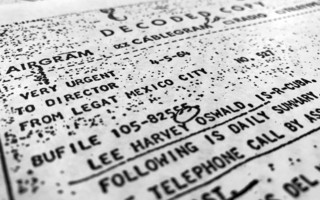 DECODED COPY
AIRGRAM CABLEGRAM RADIO
VERY URGENT 4-5-64
TO DIRECTOR
FROM LEGAT MEXICO CITY NO. 927
BUFILE 105-82555
LEE HARVEY OSWALD, IS-R-CUBA.
FOLLOWING IS DAILY SUMMARY.
TELEPHONE CALL BY
DEL